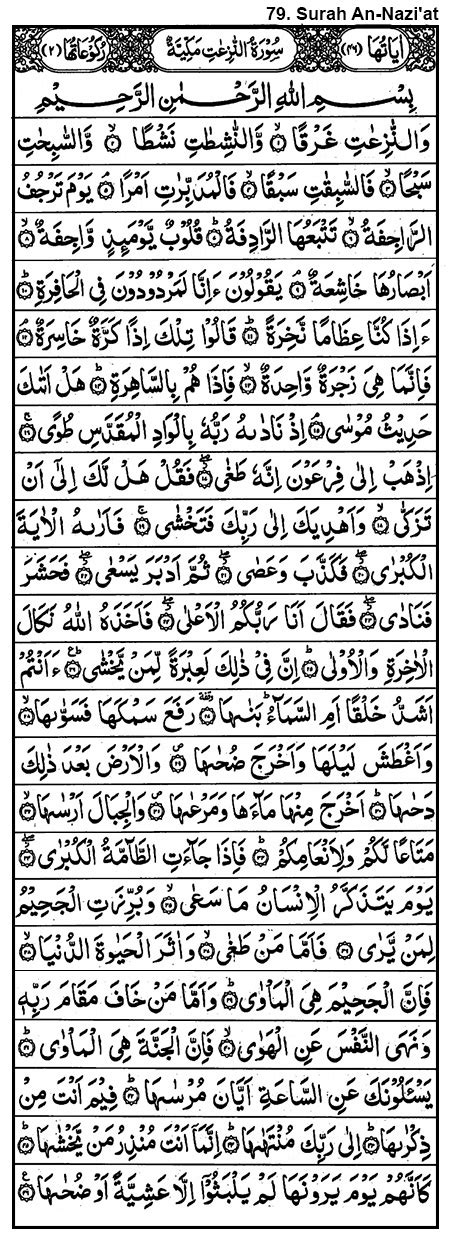 79. Surah An-Nazi'at
اٰیَاتُهَا (٤٦) سُوْرَةُ النّٰزِعٰتِ مَكِّیَّةٌ رُكُوْعَاتُهَا (٢)
بِسْمِ اللّٰهِ الرَّحْمٰنِ الرَّحِیْمِ
وَالنّٰزِعٰتِ غَرْقًا ۙ﴿١﴾ وَّالنّٰشِطٰتِ نَشْطًا ۙ﴿٢﴾ وَّالسّٰبِحٰتِ
سَبْحًا ۙ﴿٣﴾ فَالسّٰبِقٰتِ سَبْقًا ۙ﴿٤﴾ فَالْمُدَبِّرٰتِ اَمْرًا ۘ﴿٥﴾ یَوْمَ تَرْجُفُ
الرَّاجِفَةُ ۙ﴿٦﴾ تَتْبَعُهَا الرَّادِفَةُ ؕ﴿٧﴾ قُلُوْبٌ یَّوْمَىِٕذٍ وَّاجِفَةٌ ۙ﴿٨﴾
اَبْصَارُهَا خَاشِعَةٌ ۘ﴿٩﴾ یَقُوْلُوْنَ ءَاِنَّا لَمَرْدُوْدُوْنَ فِی الْحَافِرَةِ ؕ﴿١٠﴾
ءَاِذَا كُنَّا عِظَامًا نَّخِرَةً ؕ﴿١١﴾ قَالُوْا تِلْكَ اِذًا كَرَّةٌ خَاسِرَةٌ ۘ﴿١٢﴾
فَاِنَّمَا هِیَ زَجْرَةٌ وَّاحِدَةٌ ۙ﴿١٣﴾ فَاِذَا هُمْ بِالسَّاهِرَةِ ؕ﴿١٤﴾ هَلْ اَتٰىكَ
حَدِیْثُ مُوْسٰی ۘ﴿١٥﴾ اِذْ نَادٰىهُ رَبُّهٗ بِالْوَادِ الْمُقَدَّسِ طُوًی ۚ﴿١٦﴾
اِذْهَبْ اِلٰی فِرْعَوْنَ اِنَّهٗ طَغٰی ۖ﴿١٧﴾ فَقُلْ هَلْ لَّكَ اِلٰۤی اَنْ
تَزَكّٰی ۙ﴿١٨﴾ وَاَهْدِیَكَ اِلٰی رَبِّكَ فَتَخْشٰی ۚ﴿١٩﴾ فَاَرٰىهُ الْاٰیَةَ
الْكُبْرٰی ۖ﴿٢٠﴾ فَكَذَّبَ وَعَصٰی ۖ﴿٢١﴾ ثُمَّ اَدْبَرَ یَسْعٰی ۖ﴿٢٢﴾ فَحَشَرَ
فَنَادٰی ۖ﴿٢٣﴾ فَقَالَ اَنَا رَبُّكُمُ الْاَعْلٰی ۖ﴿٢٤﴾ فَاَخَذَهُ اللّٰهُ نَكَالَ
الْاٰخِرَةِ وَالْاُوْلٰی ؕ﴿٢٥﴾ اِنَّ فِیْ ذٰلِكَ لَعِبْرَةً لِّمَنْ یَّخْشٰی ؕ﴿٢٦﴾ ءَاَنْتُمْ
اَشَدُّ خَلْقًا اَمِ السَّمَآءُ ؕ بَنٰىهَا ﴿٢٧﴾ رَفَعَ سَمْكَهَا فَسَوّٰىهَا ۙ﴿٢٨﴾
وَاَغْطَشَ لَیْلَهَا وَاَخْرَجَ ضُحٰىهَا ۪﴿٢٩﴾ وَالْاَرْضَ بَعْدَ ذٰلِكَ
دَحٰىهَا ؕ﴿٣٠﴾ اَخْرَجَ مِنْهَا مَآءَهَا وَمَرْعٰىهَا ۪﴿٣١﴾ وَالْجِبَالَ اَرْسٰىهَا ۙ﴿٣٢﴾
مَتَاعًا لَّكُمْ وَلِاَنْعَامِكُمْ ؕ﴿٣٣﴾ فَاِذَا جَآءَتِ الطَّآمَّةُ الْكُبْرٰی ۖ﴿٣٤﴾
یَوْمَ یَتَذَكَّرُ الْاِنْسَانُ مَا سَعٰی ۙ﴿٣٥﴾ وَبُرِّزَتِ الْجَحِیْمُ
لِمَنْ یَّرٰی ﴿٣٦﴾ فَاَمَّا مَنْ طَغٰی ۙ﴿٣٧﴾ وَاٰثَرَ الْحَیٰوةَ الدُّنْیَا ۙ﴿٣٨﴾
فَاِنَّ الْجَحِیْمَ هِیَ الْمَاْوٰی ؕ﴿٣٩﴾ وَاَمَّا مَنْ خَافَ مَقَامَ رَبِّهٖ
وَنَهَی النَّفْسَ عَنِ الْهَوٰی ۙ﴿٤٠﴾ فَاِنَّ الْجَنَّةَ هِیَ الْمَاْوٰی ؕ﴿٤١﴾
یَسْـَٔلُوْنَكَ عَنِ السَّاعَةِ اَیَّانَ مُرْسٰىهَا ؕ﴿٤٢﴾ فِیْمَ اَنْتَ مِنْ
ذِكْرٰىهَا ؕ﴿٤٣﴾ اِلٰی رَبِّكَ مُنْتَهٰىهَا ؕ﴿٤٤﴾ اِنَّمَاۤ اَنْتَ مُنْذِرُ مَنْ یَّخْشٰىهَا ؕ﴿٤٥﴾
كَاَنَّهُمْ یَوْمَ یَرَوْنَهَا لَمْ یَلْبَثُوْۤا اِلَّا عَشِیَّةً اَوْ ضُحٰىهَا ۠﴿٤٦﴾